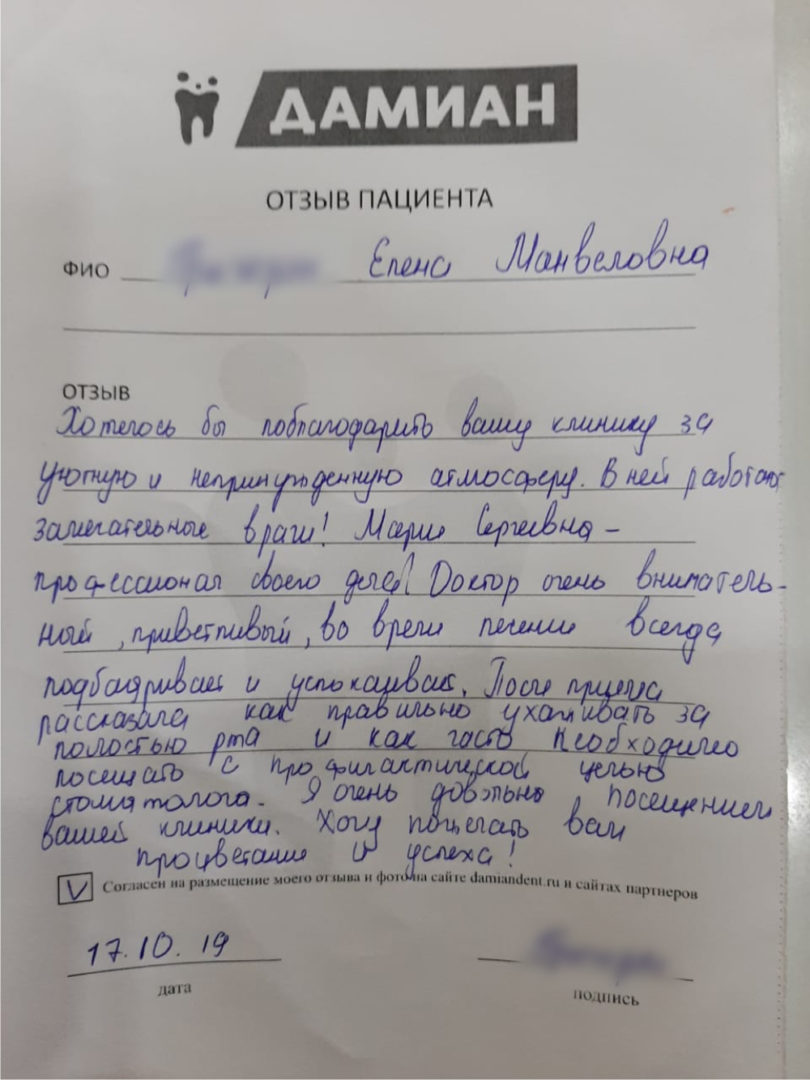 ДАМИАН
ОТЗЫВ ПАЦИЕНТА
ФИО Елена Манвеловна
ОТЗЫВ
Хотелось бы поблагодарить вашу клинику за
уютную и непринужденную атмосферу. В ней работают
замечательные врачи! Мария Сергеевна –
профессионал своего дела! Доктор очень вниматель-
ный, приветливый, во время лечения всегда
подбадривает и успокаивает. После приема
рассказала как правильно ухаживать за
полостью рта и как часто необходимо
посещать с профилактической целью
стоматолога. Я очень довольна посещением
вашей клиники. Хочу пожелать вам
процветания и успеха!
V Согласен на размещение моего отзыва и фото на сайте damiandent.ru и сайтах партнеров
17.10.19
дата
подпись